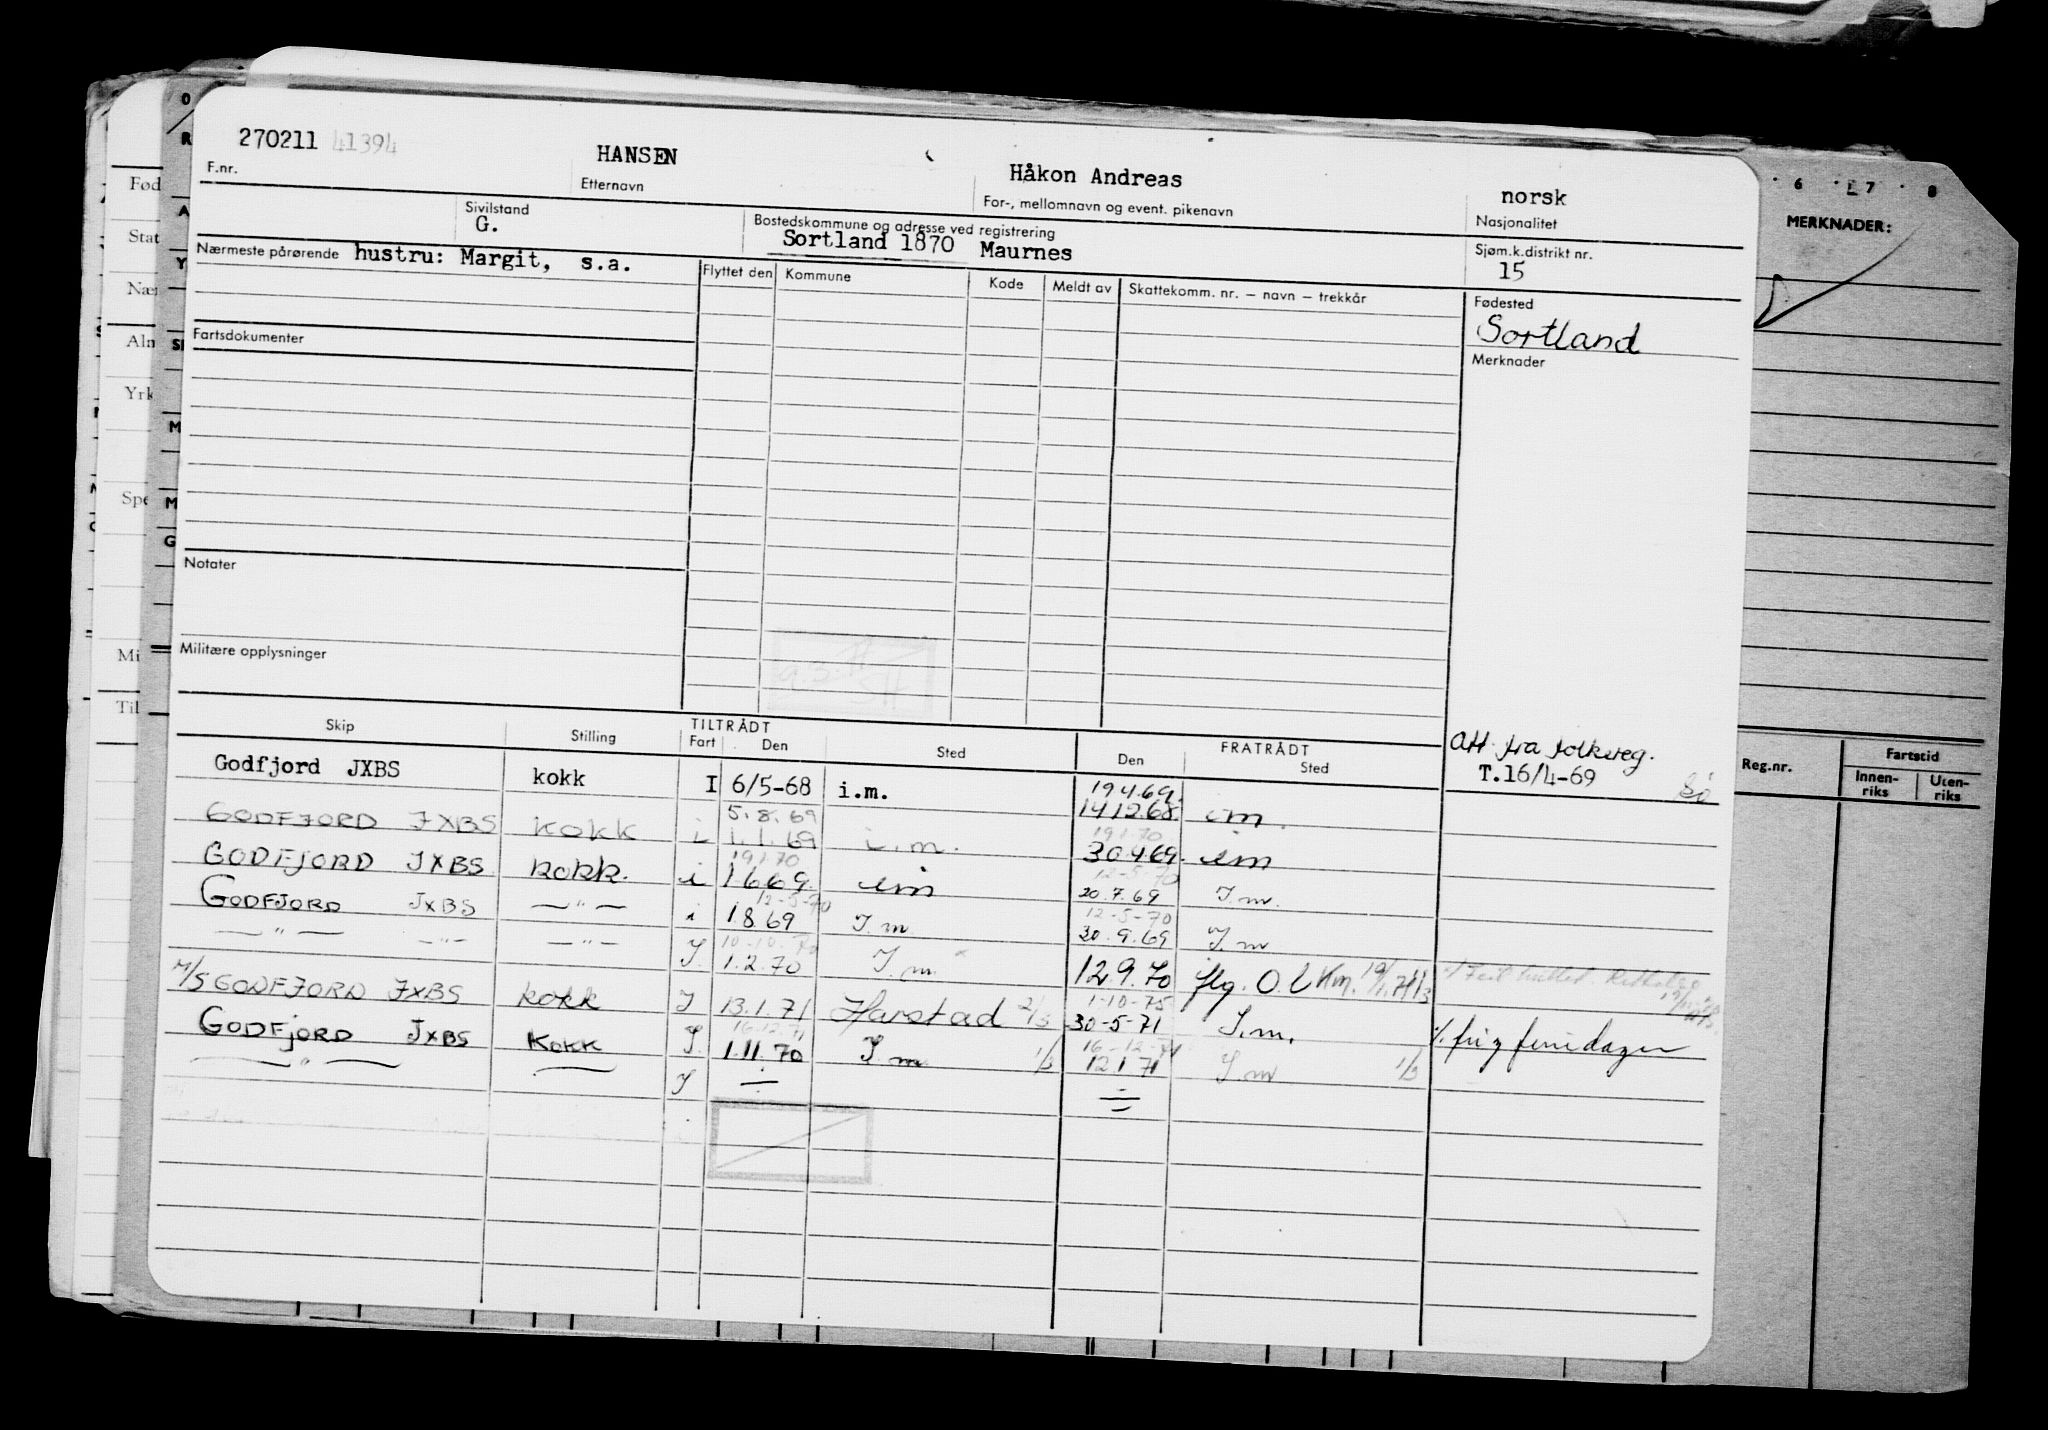 270211 41394 HANSEN Håkon Andreas norsk
F.nr. Etternavn For-, mellomnavn og event. pikenavn Nasjonalitet
Sivilstand Bostedskommune og adresse ved registrering Sjøm.k.distrikt nr.
G. Sortland 1870 Maurnes 15
Nærmeste pårørende hustru: Margit, s.a. Flyttet den Kommune Kode Meldt av Skattekomm. nr. – navn – trekkår Fødested
Sortland
Fartsdokumenter Merknader
Notater
Militære opplysninger
Skip Stilling TILTRÅDT FRATRÅDT Att. fra folkereg.
Fart Den Sted Den Sted T.16/4-69
Godfjord JXBS kokk I 6/5-68 i.m. 19.4.69.
5.8.69 14.12.68. i.m.
GODFJORD JXBS kokk i 1.1.69 i.m. 19.1.70
19.1.70 30.4.69. i.m
GODFJORD JXBS kokk. i 1.6.69. i.m 12-5-70
12-5-70 20.7.69 I.m.
GODFJORD JXBS —"— i 1.8.69 I.m. 12-5-70
10-10-70 30.9.69 I.m
—"— —"— —"— I. 1.2.70 I.m. 12.9.70 flg. O.L Hm.
M/S GODFJORD JXBS kokk I 13.1.71 Harstad 2/3 1-10-75
16.12.71 30-5-71 I.m.
GODFJORD JXBS Kokk I. 1.11.70 I.m 1/3 16-12-71
12.1.71 I.m 1/3
—"— — I
MERKNADER:
6 7 8
Reg.nr. Fartstid
Innen-riks Uten-riks
Fød
Stat
Nær
Aln
Yrk
Spe
Mi
Til